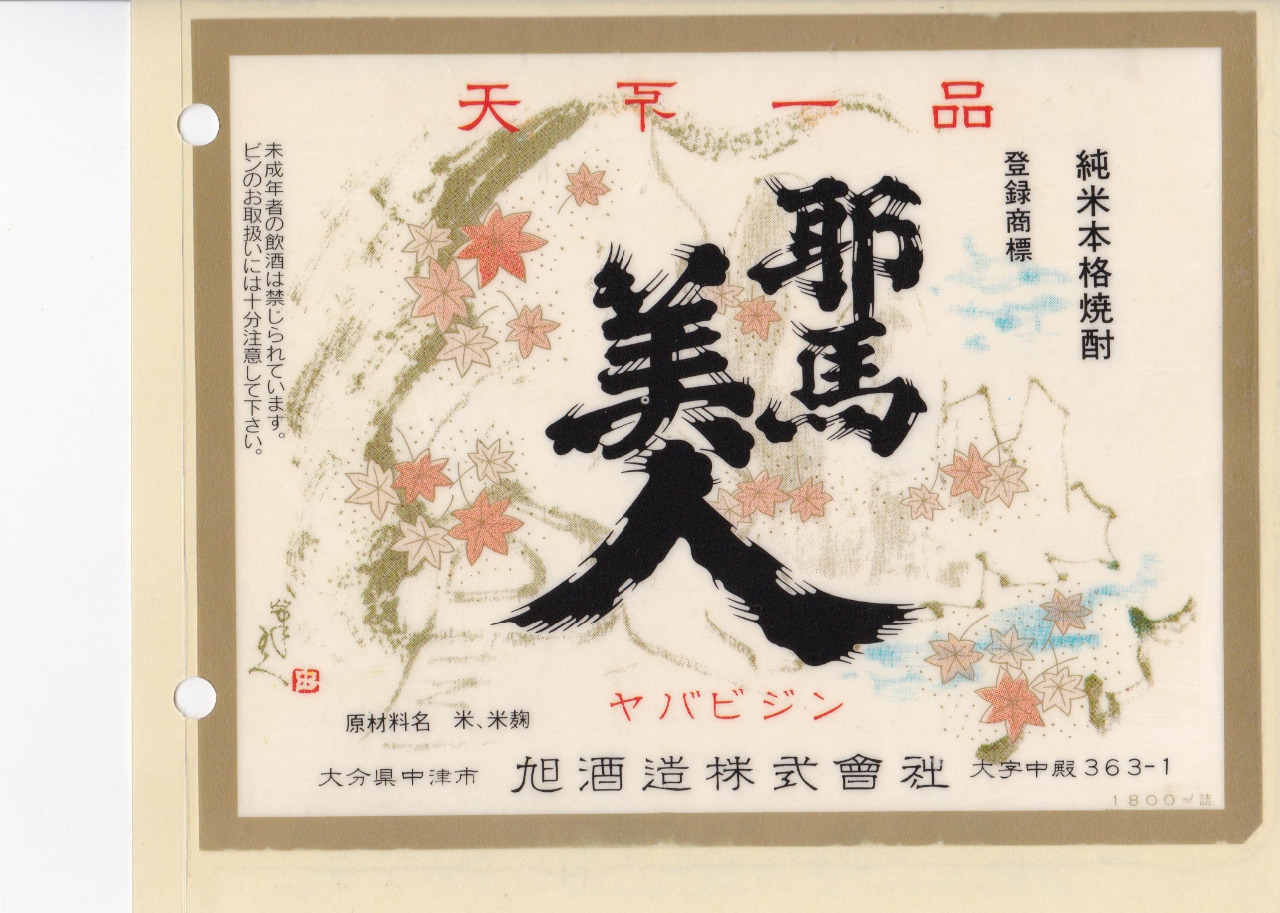 天下一品
純米本格焼酎
登録商標
耶馬
美人
未成年者の飲酒は禁じられています。
ビンのお取扱いには十分注意して下さい。
ヤバビジン
原材料名 米、米麹
大分県中津市 旭酒造株式會社 大字中殿363-1
1800㎖詰